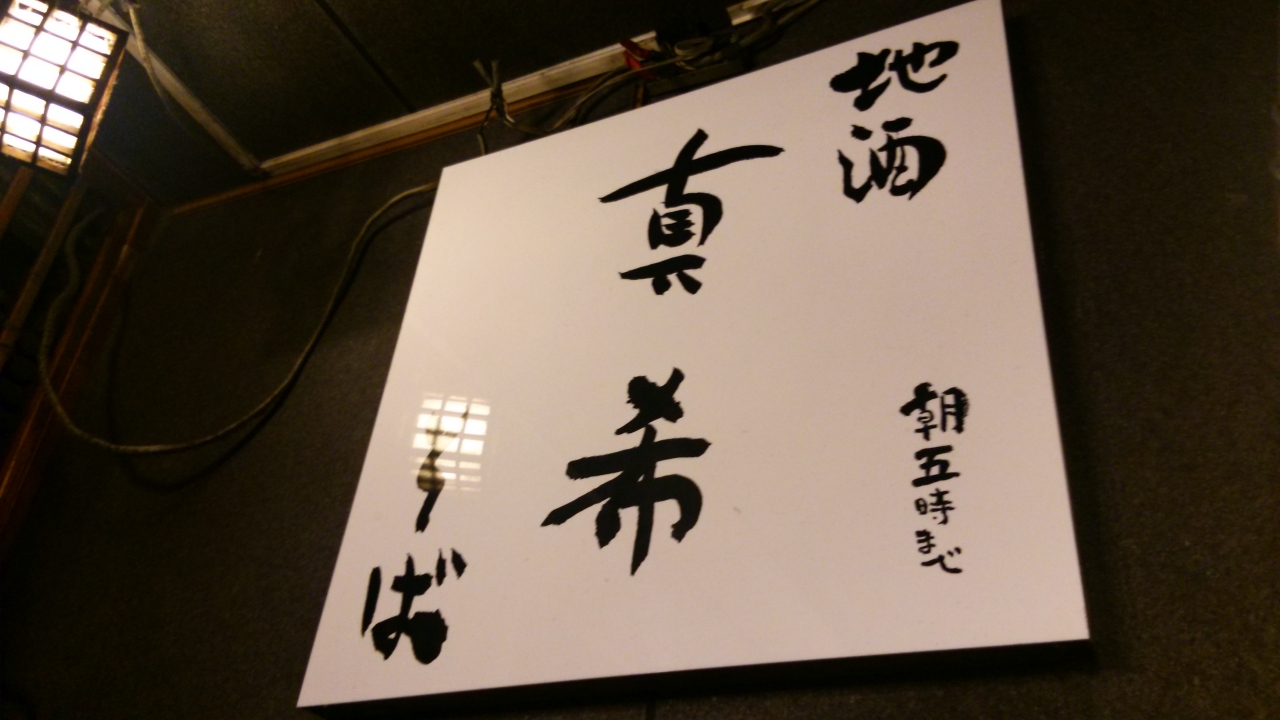 地酒
朝五時まで
真希
そば